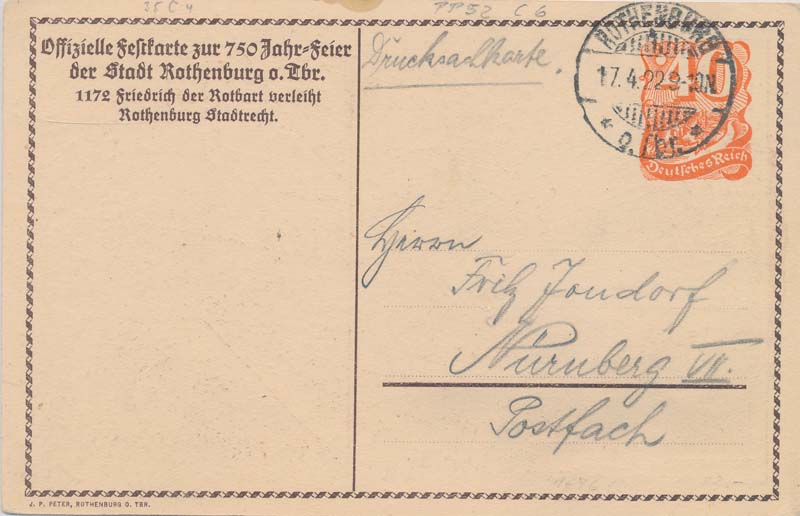 35 C 4
PP 52 C 6
Offizielle Festkarte zur 750 Jahr=Feier
der Stadt Rothenburg o. Tbr.
1172 Friedrich der Rotbart verleiht
Rothenburg Stadtrecht.
Drucksachkarte.
ROTHENBURG
17.4.22 9-10N
* o. Tbr. *
40
Deutsches Reich
Herrn
Fritz Jondorf
Nürnberg VII.
Postfach
J. P. PETER, ROTHENBURG O. TBR.